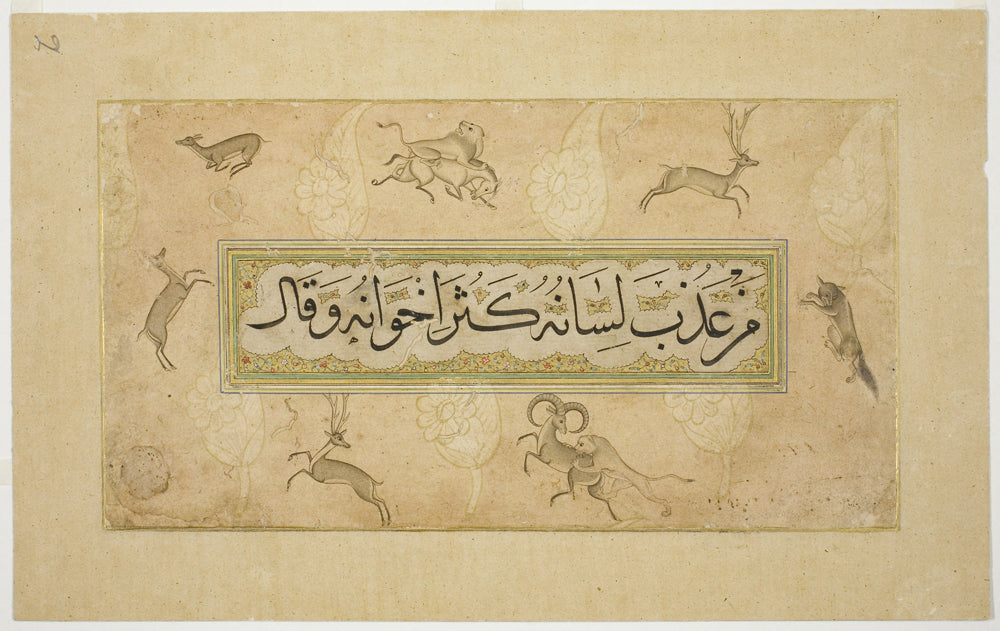 من عَذُبَ لِسَانُهُ كَثُرَ اِخْوَانُهُ وَقَالَ